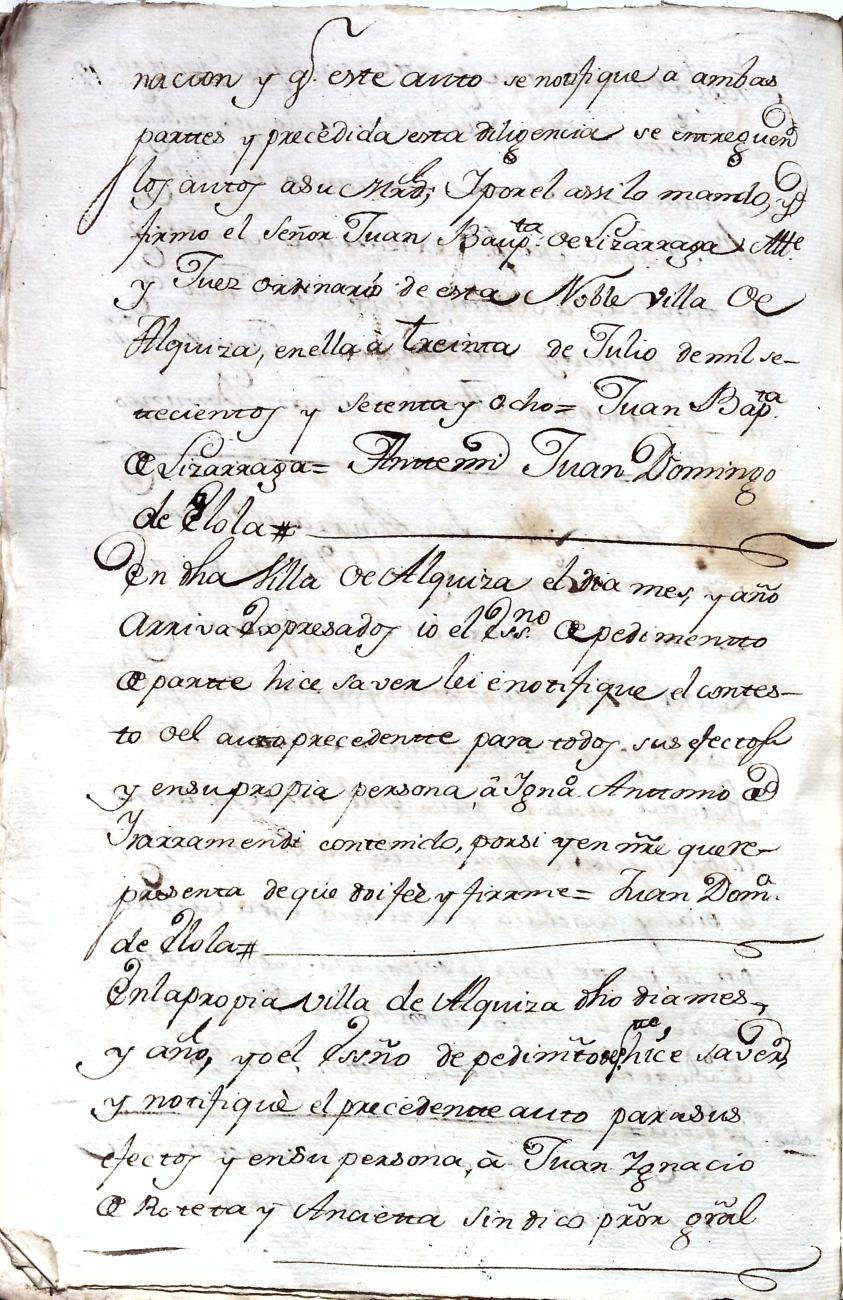 nacion y q.e este auto se notifique a ambas
parttes y precedida esta diligencia se entreguen
los autos a su Mrd; I por el assi lo mando, y
firmo el Señor Juan Baup.ta de Lizarraga Alte
y Juez ordinario de esta Noble Villa de
Alquiza, en ella a treinta de Julio de mil se-
ttecientos y setenta y ocho= Juan Bap.ta
de Lizarraga= Anttemi Juan Domingo
de Elola#
En dha Villa de Alquiza el dia mes, y año
arriva Expresados io el Ess.no de pedimentto
de partte hice saver lei e notifique el contes-
to del auto precedentte para todos sus efectos
y en su propia persona, â Ygnã. Anttonio de
Yrarramendi contenido, por si y en ñre que re-
presenta de que doi feè y firme= Juan Dom.o
de Elola#
En la propia villa de Alquiza dho dia mes,
y año, yo el Essño de pedimto de p.tte, hice saver,
y notifiquè el precedentte auto para sus
efectos y en su persona, à Juan Ygnacio
de Roteta y Ancietta sindico prõr gral